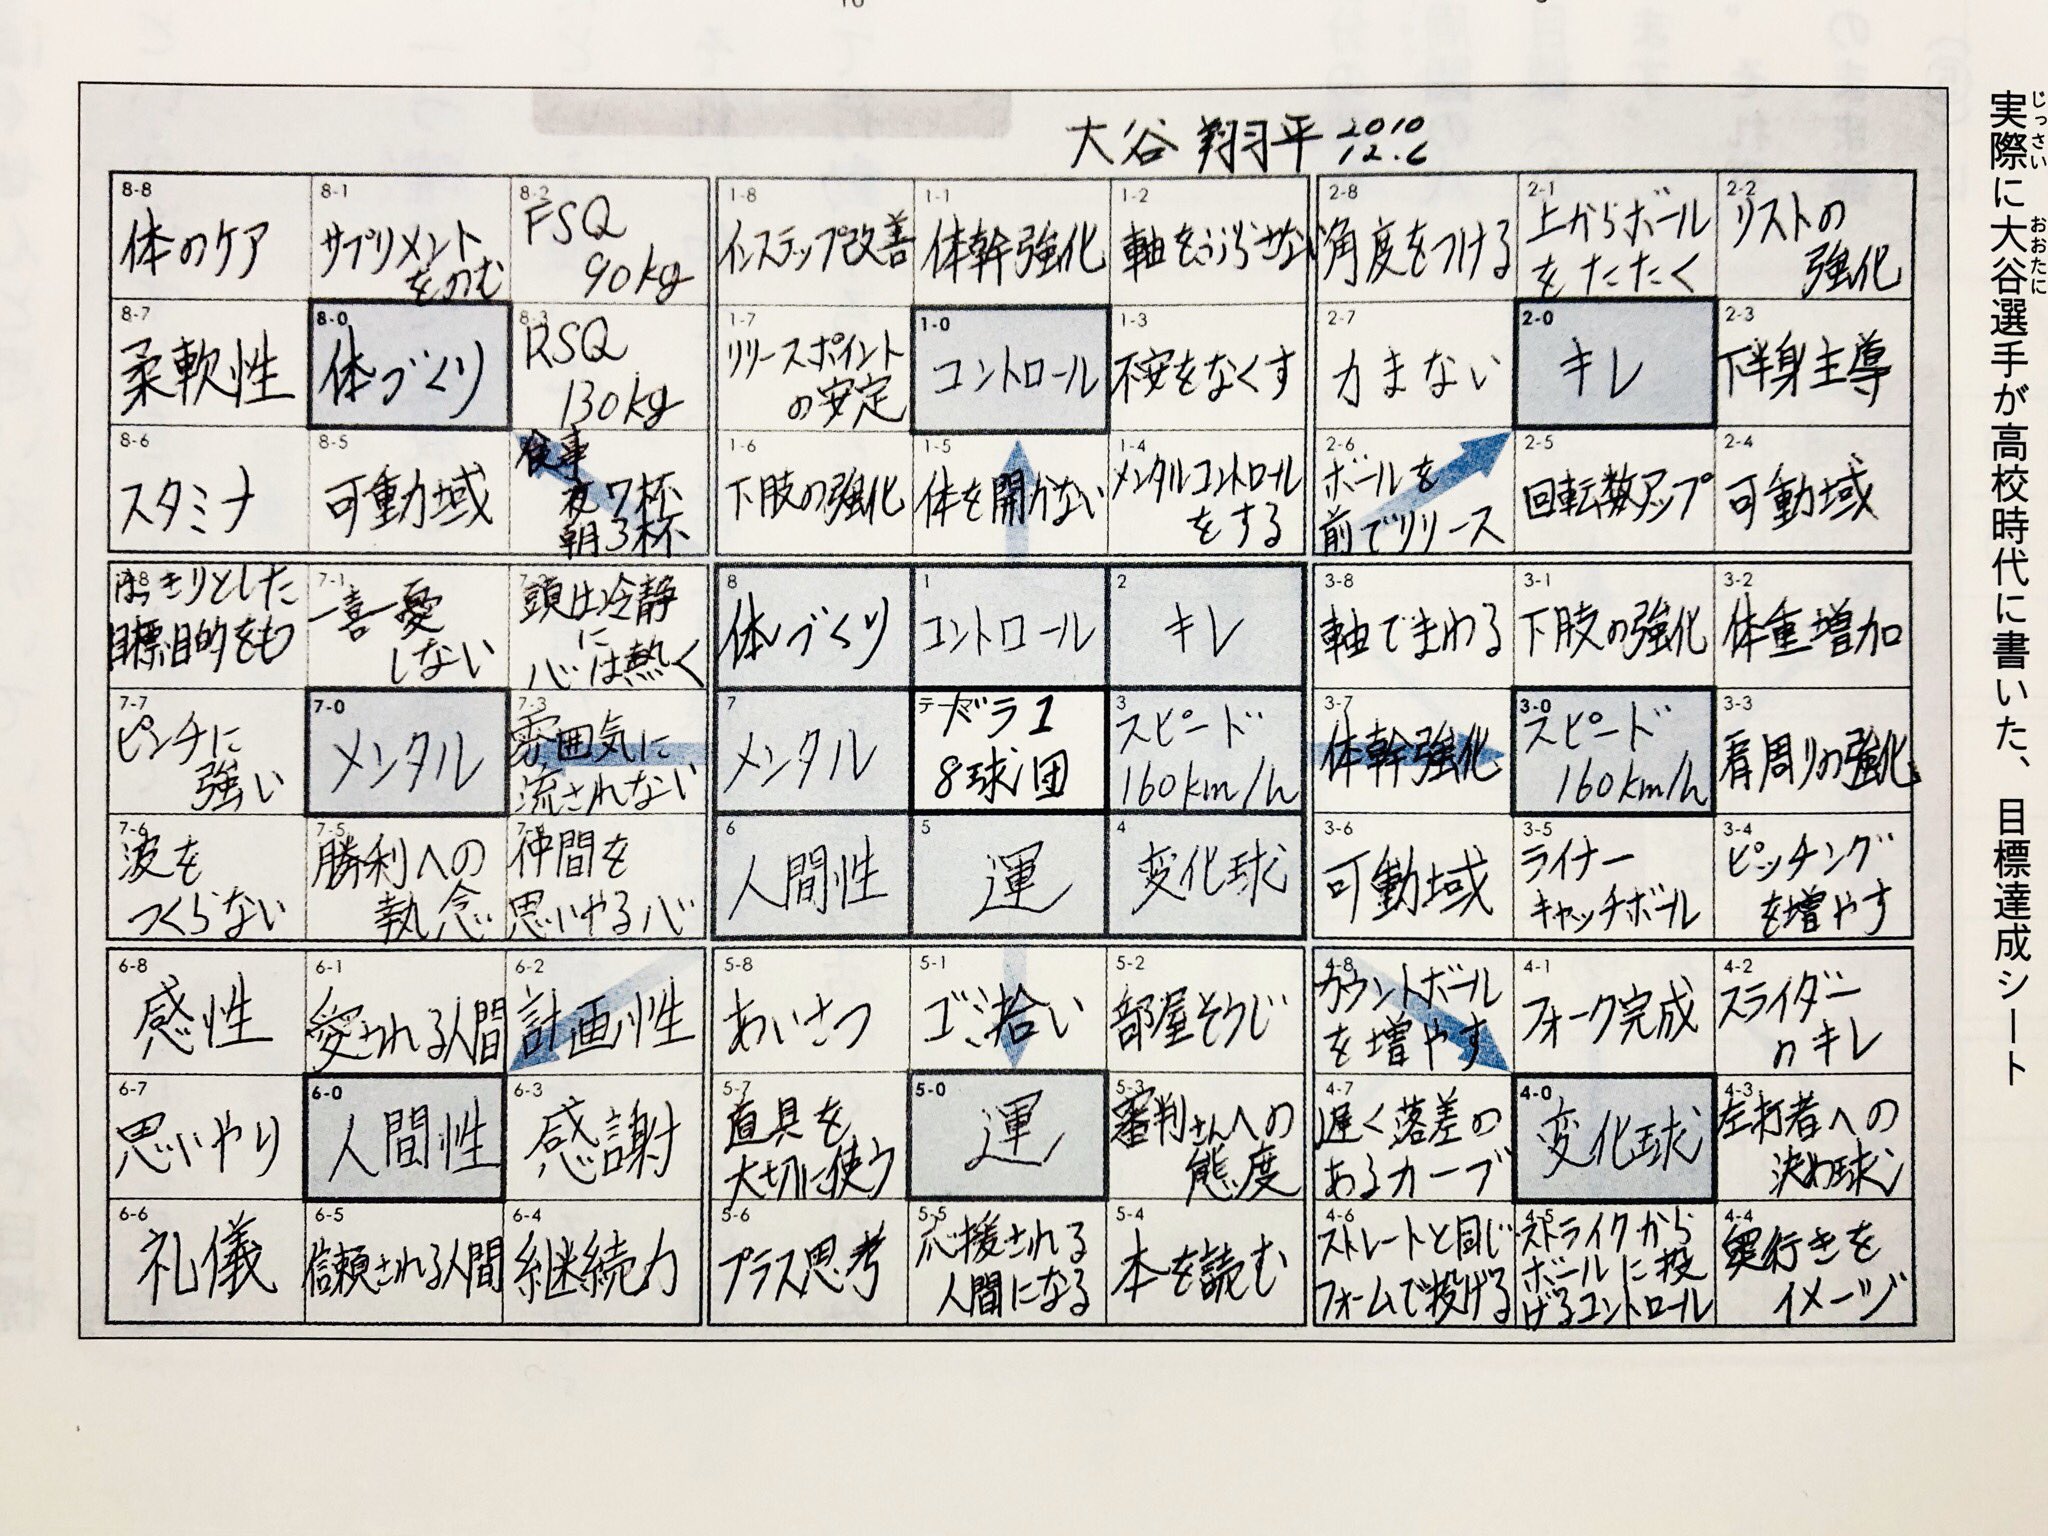 大谷 翔平 2010
12.6
8-8
体のケア
8-1
サプリメント
をのむ
8-2
FSQ
90kg
8-7
柔軟性
8-0
体づくり
8-3
RSQ
130kg
8-6
スタミナ
8-5
可動域
食事
夜7杯
朝3杯
1-8
インステップ改善
1-1
体幹強化
1-2
軸をぶらさない
1-7
リリースポイント
の安定
1-0
コントロール
1-3
不安をなくす
1-6
下肢の強化
1-5
体を開かない
1-4
メンタルコントロール
をする
2-8
角度をつける
2-1
上からボール
をたたく
2-2
リストの
強化
2-7
力まない
2-0
キレ
2-3
下半身主導
2-6
ボールを
前でリリース
2-5
回転数アップ
2-4
可動域
はっきりとした
目標目的をもつ
7-1
一喜一憂
しない
頭は冷静
に
心は熱く
7-7
ピンチに
強い
7-0
メンタル
7-3
雰囲気に
流されない
7-6
波を
つくらない
7-5
勝利への
執念
仲間を
思いやる心
8
体づくり
1
コントロール
2
キレ
7
メンタル
テーマ
ドラ1
8球団
3
スピード
160km/h
6
人間性
5
運
4
変化球
3-8
軸でまわる
3-1
下肢の強化
3-2
体重増加
3-7
体幹強化
3-0
スピード
160km/h
3-3
肩周りの強化
3-6
可動域
3-5
ライナー
キャッチボール
3-4
ピッチング
を増やす
6-8
感性
6-1
愛される人間
6-2
計画性
6-7
思いやり
6-0
人間性
6-3
感謝
6-6
礼儀
6-5
信頼される人間
6-4
継続力
5-8
あいさつ
5-1
ゴミ拾い
5-2
部屋そうじ
5-7
道具を
大切に使う
5-0
運
5-3
審判さんへの
態度
5-6
プラス思考
5-5
応援される
人間になる
5-4
本を読む
4-8
カウントボール
を増やす
4-1
フォーク完成
4-2
スライダー
のキレ
4-7
遅く落差の
あるカーブ
4-0
変化球
4-3
左打者への
決め球
4-6
ストレートと同じ
フォームで投げる
4-5
ストライクから
ボールに投
げるコントロール
4-4
奥行きを
イメージ
実際に大谷選手が高校時代に書いた、目標達成シート
じっさい
おおたに